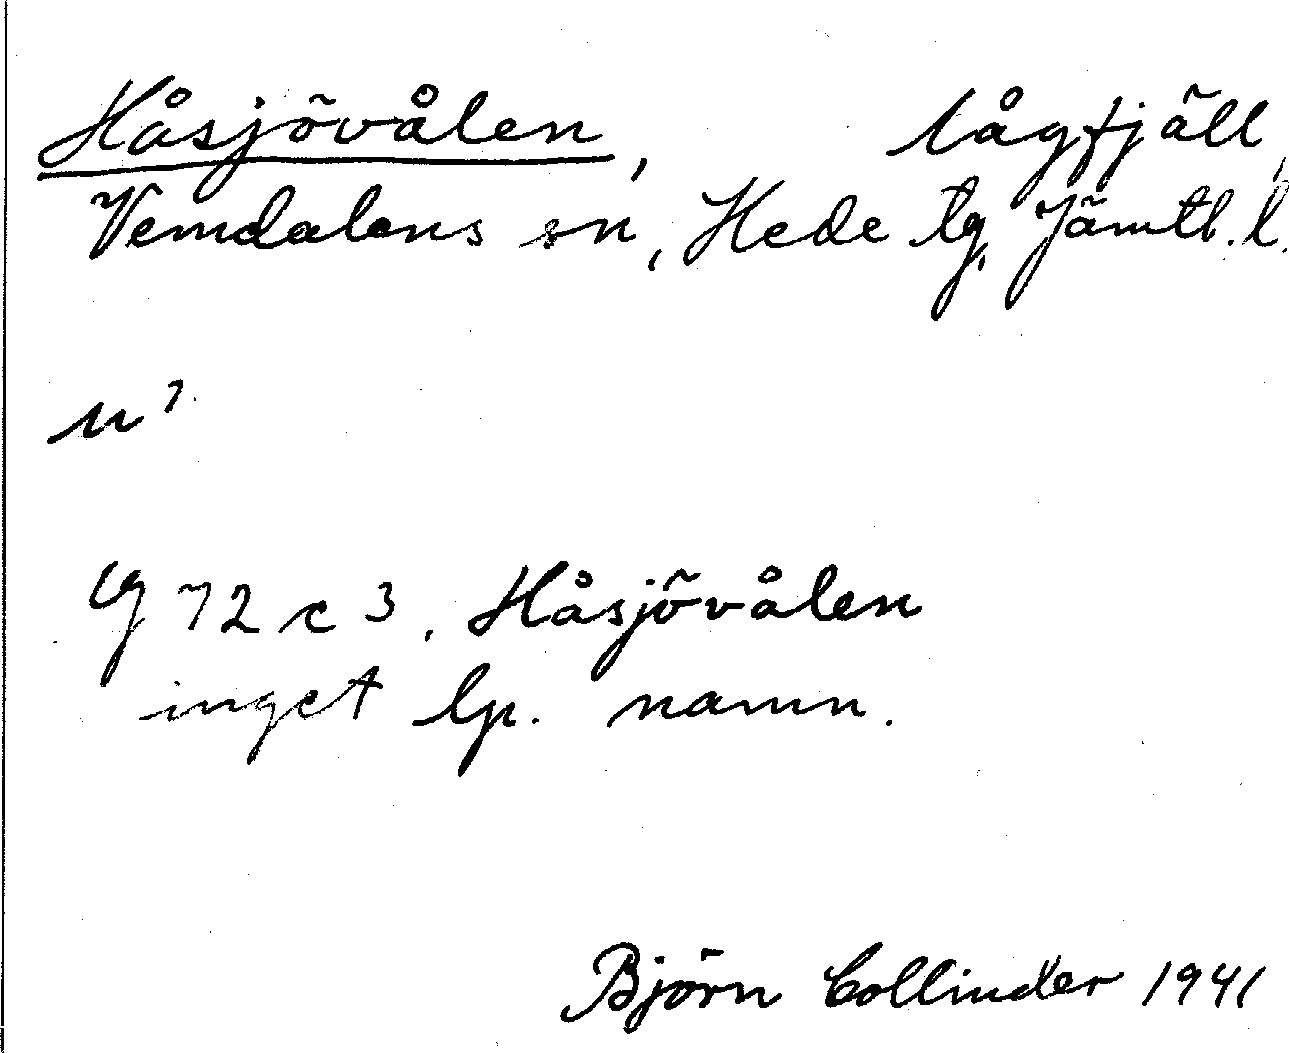 Håsjövålen, lågfjäll,
Vemdalens sn, Hede tg, Jämtl. l.
72 c 3, Håsjövålen
inget lp. namn.
Björn Collinder 1941